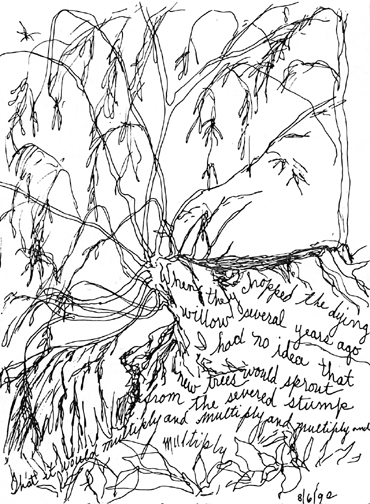 When they chopped the dying
willow several years ago
I had no idea that
new trees would sprout
from the severed stump
That it would multiply and multiply and multiply and
multiply
8/6/92